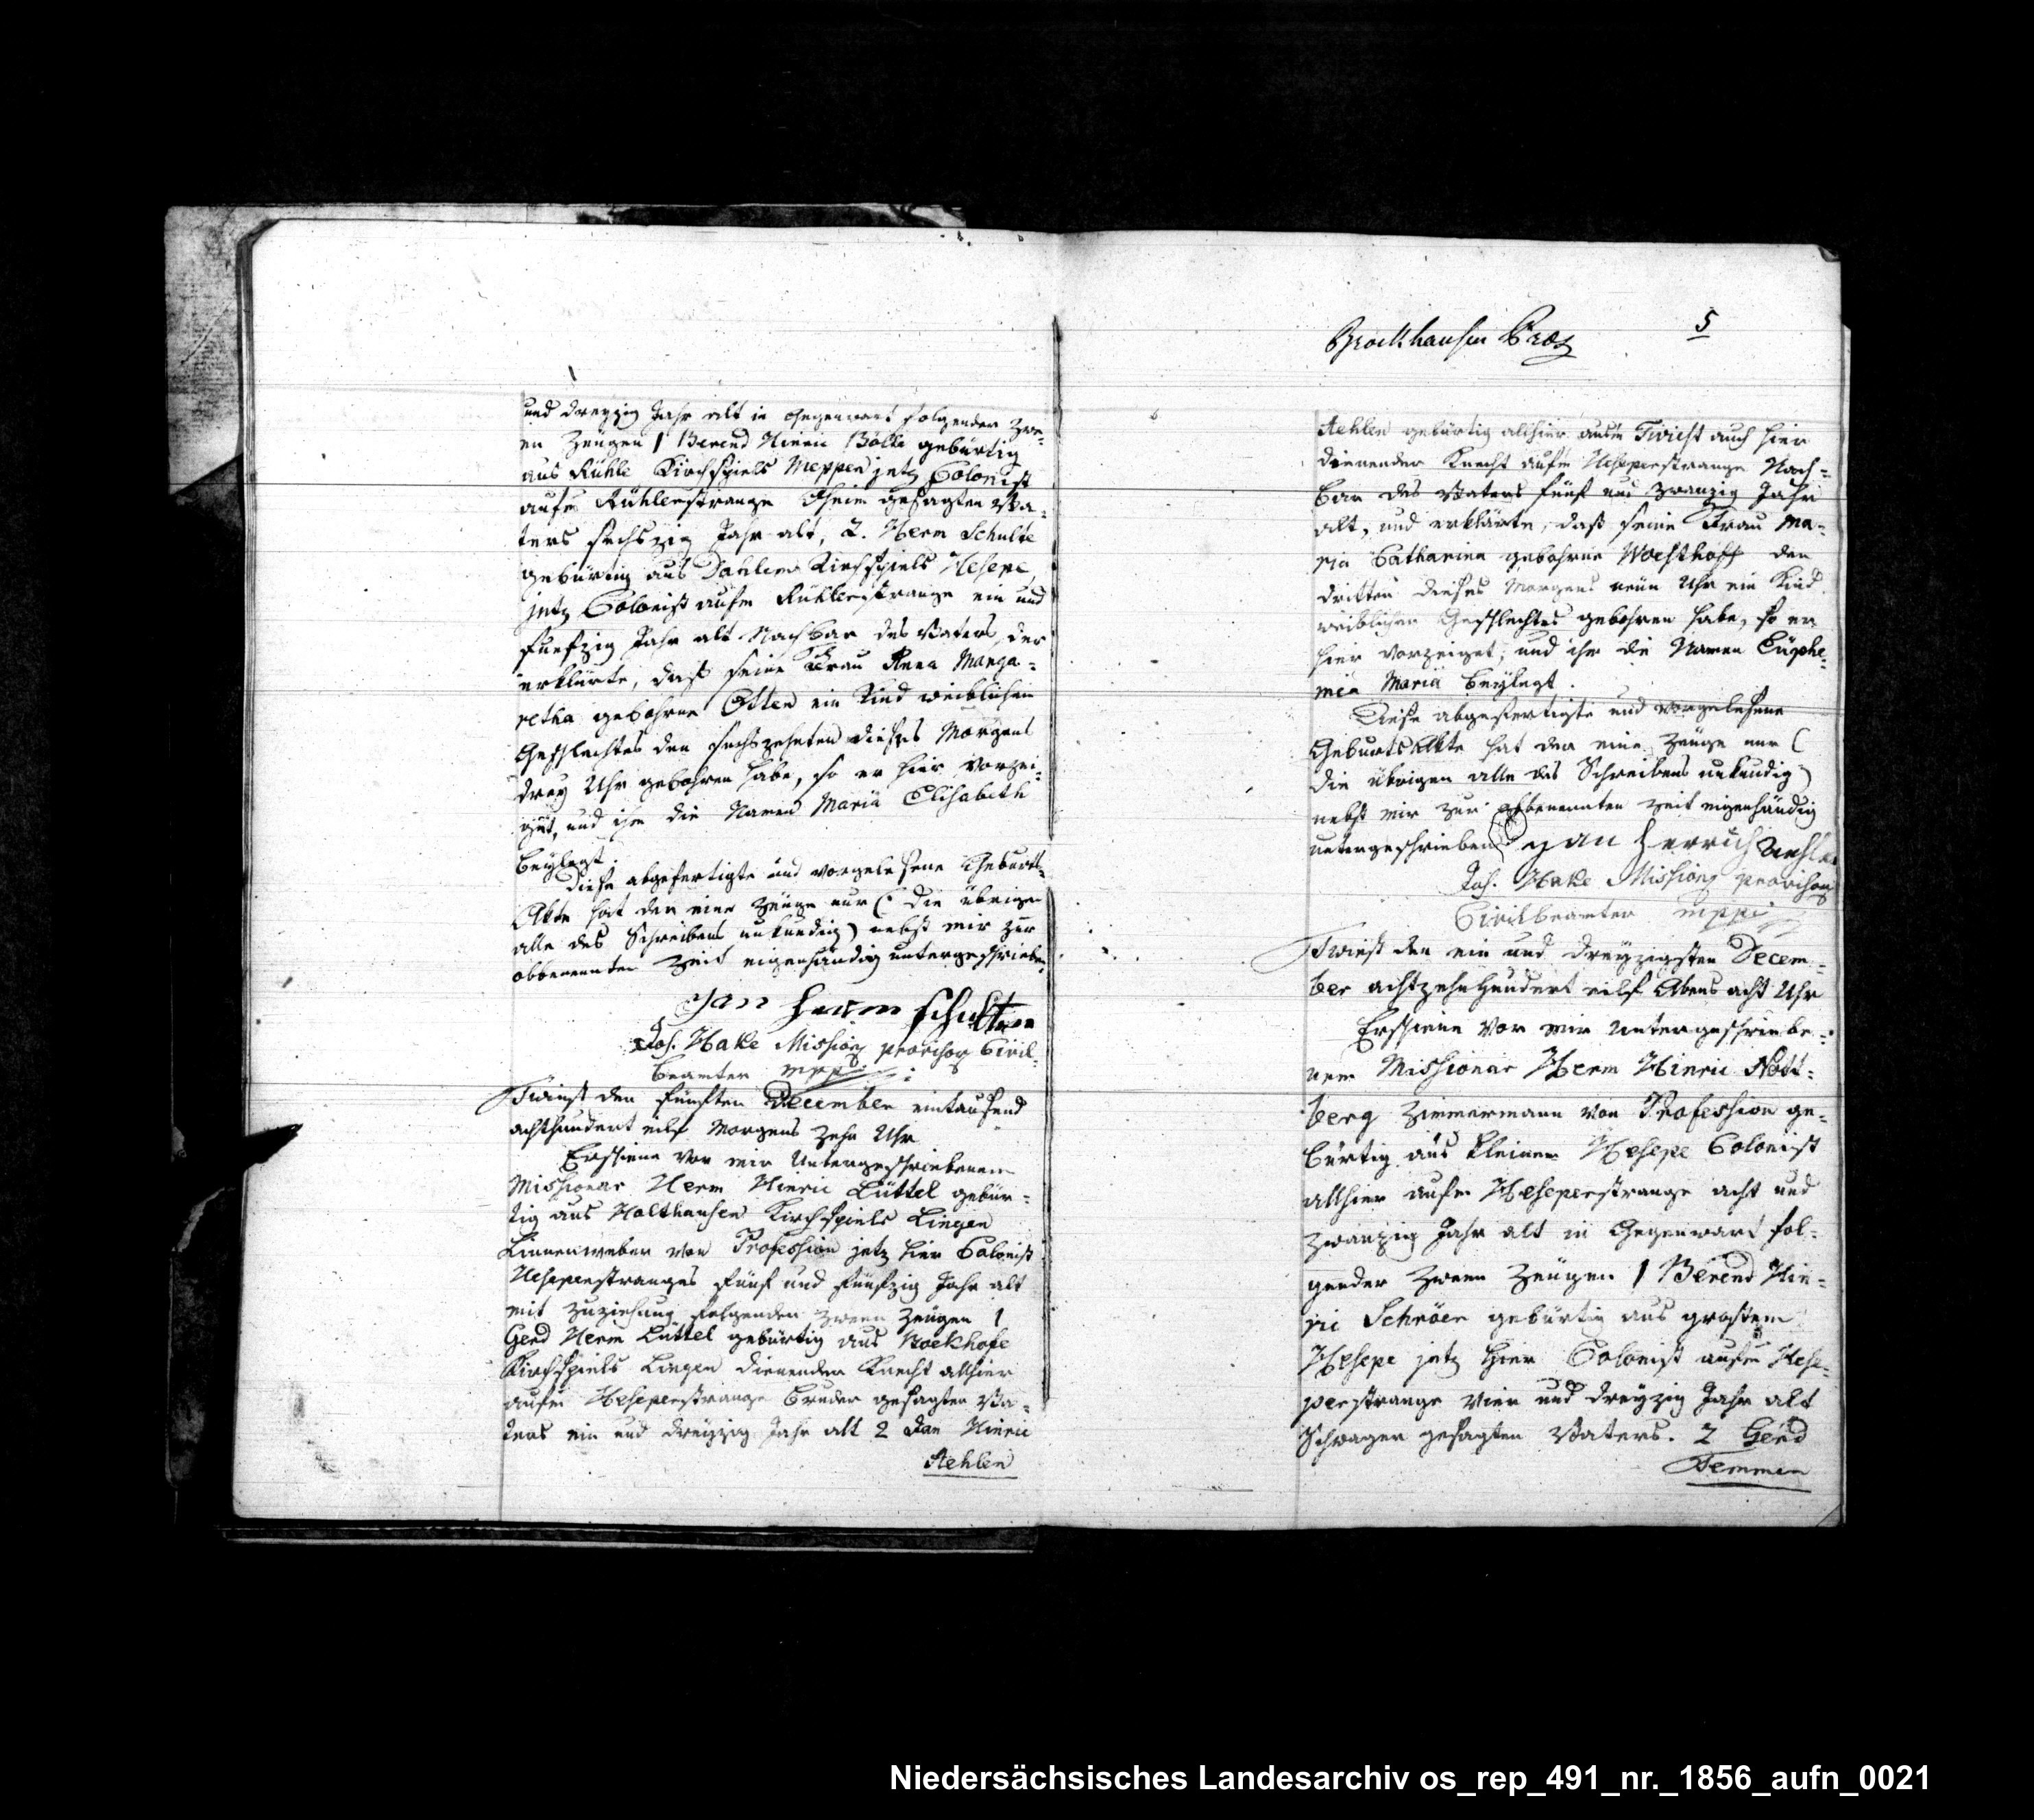 und dreyzig Jahr alt in Gegenwart folgender Zwe-
en Zeugen 1 Berend Hinric Bölle gebürtig
aus Rühle Kirchspiels Meppen jetz Colonist
aufm Rühlerstrange Oheim gesagten Va-
ters sechszig Jahr alt, 2. Herm Schulte
gebürtig aus Dahlem Kirchspiels Hesepe
jetz Colonist aufm Rühlerstrange ein und
fünfzig Jahr alt Nachbar des Vaters, der
erklärte, daß seine Frau Anna Marga-
retha gebohrne Otten ein Kind weiblichen
Geschlechtes den sechszehnten dieses Morgens
drey Uhr gebohren habe, so er hier vorzei-
get, und ihm die Namen Maria Elisabeth
beylegt.
Diese abgefertigte und vorgelesene Geburts-
Akte hat der eine Zeuge nur (die übrigen
alle des Schreibens unkundig) nebst mir zur
obbenennten Zeit eigenhändig unterge­schrieben
Jan herm schulten
Jos. Hake Mission provisor Civil-
beamter mppr
Twist den fünften December eintausend
achthundert eilf Morgens zehn Uhr
Erschiene vor mir Untergeschriebenem
Missionar Herm Hinric Lüttel gebür-
tig aus Holthausen Kirchspiels Lingen
Linnenweber von Profession jetz hier Colonist
Heseperstranges fünf und fünfzig Jahr alt
mit Zuziehung folgenden zween Zeugen 1
Gerd Herm Lüttel gebürtig aus
Kirchspiels Lingen dienender Knecht allhier
aufm Heseperstrange Bruder gesagten Va-
ters ein und dreyzig Jahr alt 2 Jan Hinric
Aehlen
Brockhausen 5
Aehlen gebürtig allhier ausm Twist auch hier
dienender Knecht aufm Heseperstrange Nach-
bar des Vaters fünf und zwanzig Jahr
alt, und erklärte, daß seine Frau Ma-
ria Catharina gebohrne Woesthoff den
dritten dieses Morgens neun Uhr ein Kind
weiblichen Geschlechtes gebohren habe, so er
hier vorzeiget, und ihm die Namen Euphe-
mia Maria beylegt.
Diese abgefertigte und vorgelesene
Geburts Akte hat der eine Zeuge nur (
die übrigen alle des Schreibens unkundig)
nebst mir zur obbenennten Zeit eigenhändig
untergeschrieben Jan herrich Aehlen
Jos. Hake Mission provisor
Civilbeamter mppr
Twist den ein und dreyzigsten Decem-
ber achtzehnhundert eilf Abens acht Uhr
Erschiene vor mir Untergeschriebe-
nem Missionar Herm Hinric Nott-
berg Zimmermann von Profession ge-
bürtig aus kleinem Hesepe Colonist
allhier aufm Heseperstrange acht und
zwanzig Jahr alt in Gegenwart fol-
gender zween Zeugen 1 Berend Hin-
ric Schröer gebürtig aus großem
Hesepe jetz hier Colonist aufm Hese-
perstrange vier und dreyzig Jahr alt
Schwager gesagten Vaters. 2 Gerd
Temmen
Niedersächsisches Landesarchiv os_rep_491_nr._1856_aufn_0021